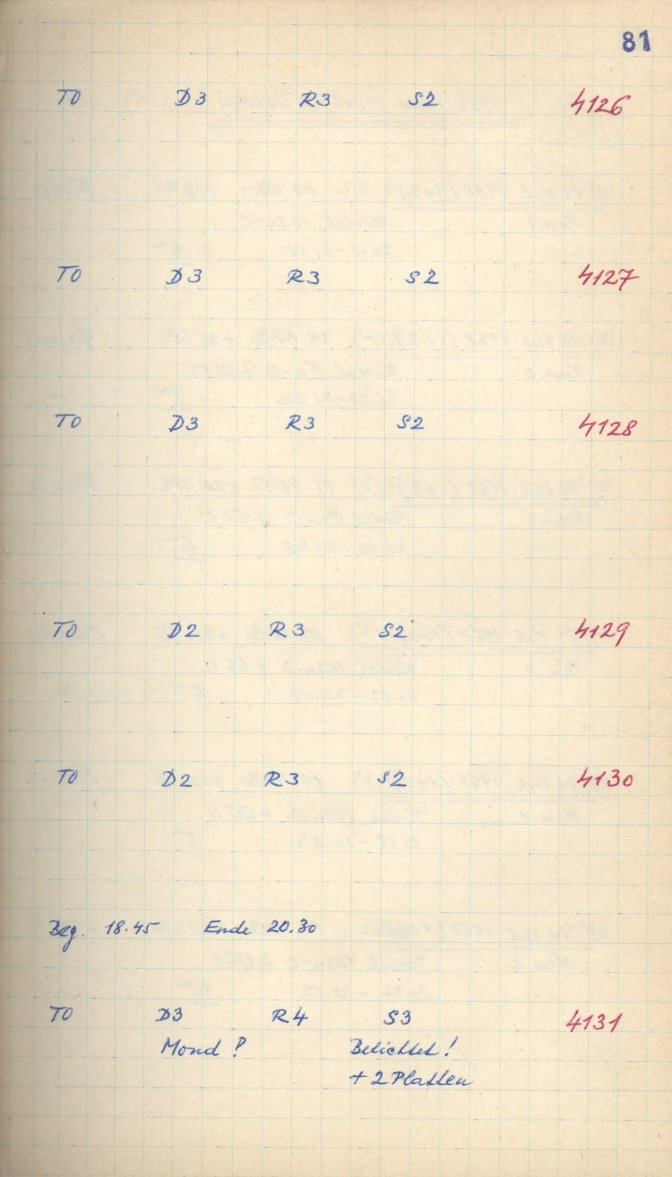 81
TO D3 R3 S2 4126
TO D3 R3 S2 4127
TO D3 R3 S2 4128
TO D2 R3 S2 4129
TO D2 R3 S2 4130
Beg. 18.45 Ende 20.30
TO D3 R4 S3 4131
Mond ? Belichtet !
+ 2 Platten